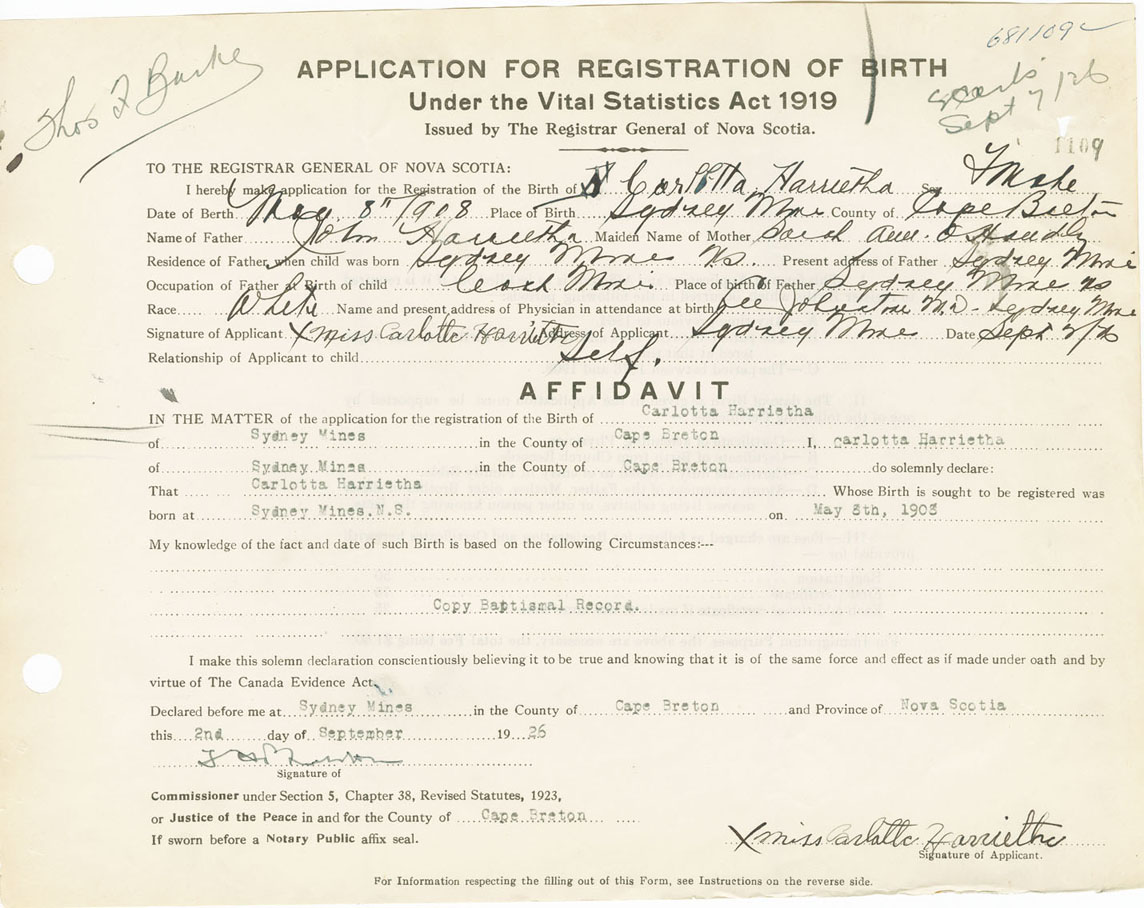 681109
Thos F Burke
APPLICATION FOR REGISTRATION OF BIRTH
Under the Vital Statistics Act 1919
Sept 7/26
Issued by The Registrar General of Nova Scotia.
1109
TO THE REGISTRAR GENERAL OF NOVA SCOTIA:
I hereby make application for the Registration of the Birth of Carlotta Harrietha Sex Female
Date of Berth May 8th 1908 Place of Birth Sydney Mines County of Cape Breton
Name of Father John Harrietha Maiden Name of Mother Sarah Ann
Residence of Father when child was born Sydney Mines N.S. Present address of Father Sydney Mines
Occupation of Father at Birth of child Coal Miner Place of birth of Father Sydney Mines NS
Race White Name and present address of Physician in attendance at birth Johnstone M.D. Sydney Mines
Signature of Applicant X Miss Carlotta Harrietha Address of Applicant Sydney Mines Date Sept 2/26
Relationship of Applicant to child Self.
AFFIDAVIT
IN THE MATTER of the application for the registration of the Birth of Carlotta Harrietha
of Sydney Mines in the County of Cape Breton I, Carlotta Harrietha
of Sydney Mines in the County of Cape Breton do solemnly declare:
That Carlotta Harrietha Whose Birth is sought to be registered was
born at Sydney Mines.N.S. on. May 8th, 1908
My knowledge of the fact and date of such Birth is based on the following Circumstances:---
Copy Baptismal Record.
I make this solemn declaration conscientiously believing it to be true and knowing that it is of the same force and effect as if made under oath and by
virtue of The Canada Evidence Act.
Declared before me at Sydney Mines in the County of Cape Breton and Province of Nova Scotia
this 2nd day of September 19 26
Signature of
Commissioner under Section 5, Chapter 38, Revised Statutes, 1923,
or Justice of the Peace in and for the County of Cape Breton
If sworn before a Notary Public affix seal.
X Miss Carlotta Harrietha
Signature of Applicant.
For Information respecting the filling out of this Form, see Instructions on the reverse side.